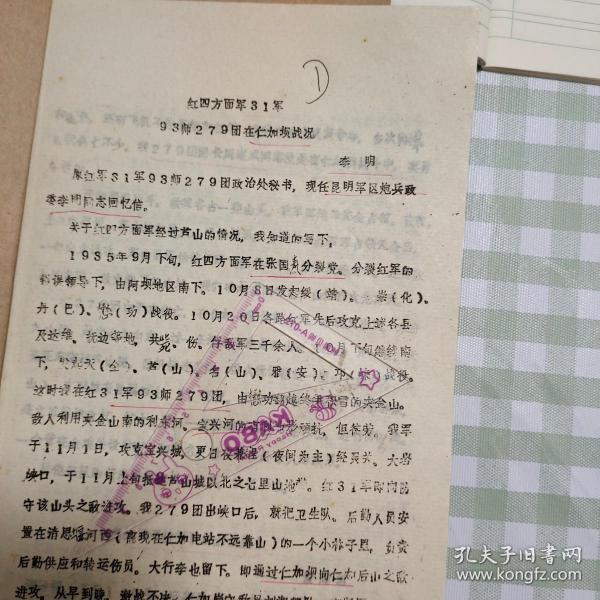 ①
红四方面军31军
93师279团在仁加坝战况
李 明
原红军31军93师279团政治处秘书,现任昆明军区炮兵政
委李明同志回忆信。
关于红四方面军经过芦山的情况,我知道的写下。
1935年9月下旬,红四方面军在张国焘分裂党。分裂红军的
错误领导下,由阿坝地区南下。10月8日发起绥(靖)、崇(化)、
丹(巴)、懋(功)战役。10月20日各路红军先后攻克上述各县
及达维、抚边等地,共毙、伤、俘敌军三千余人。下旬继续南
下,天(全)、芦(山)、名(山)、雅(安)、战役。
这时我在红31军93师279团,由懋功翻越终年积雪的夹金山。
敌人利用夹金山南的宝兴河的顽抗,但终劳。我军
于11月1日,攻克宝兴城,更日夜兼程(夜间为主)经灵关、大岩
峡口,于11月上旬抵芦山城以北之七里山地带。红31军即向防
守该山头之敌进攻。我279团出峡口后,就把卫生队。后勤人员安
置在清思堰河西(离现在仁加电站不远靠山)的一个小巷子里,负责
后勤供应和转运伤员。大行李也留下。即通过仁加坝向仁加后山之敌
进攻。从早到晚,激战不决。
KYBO
孔夫子旧书网
www.kongfz.com